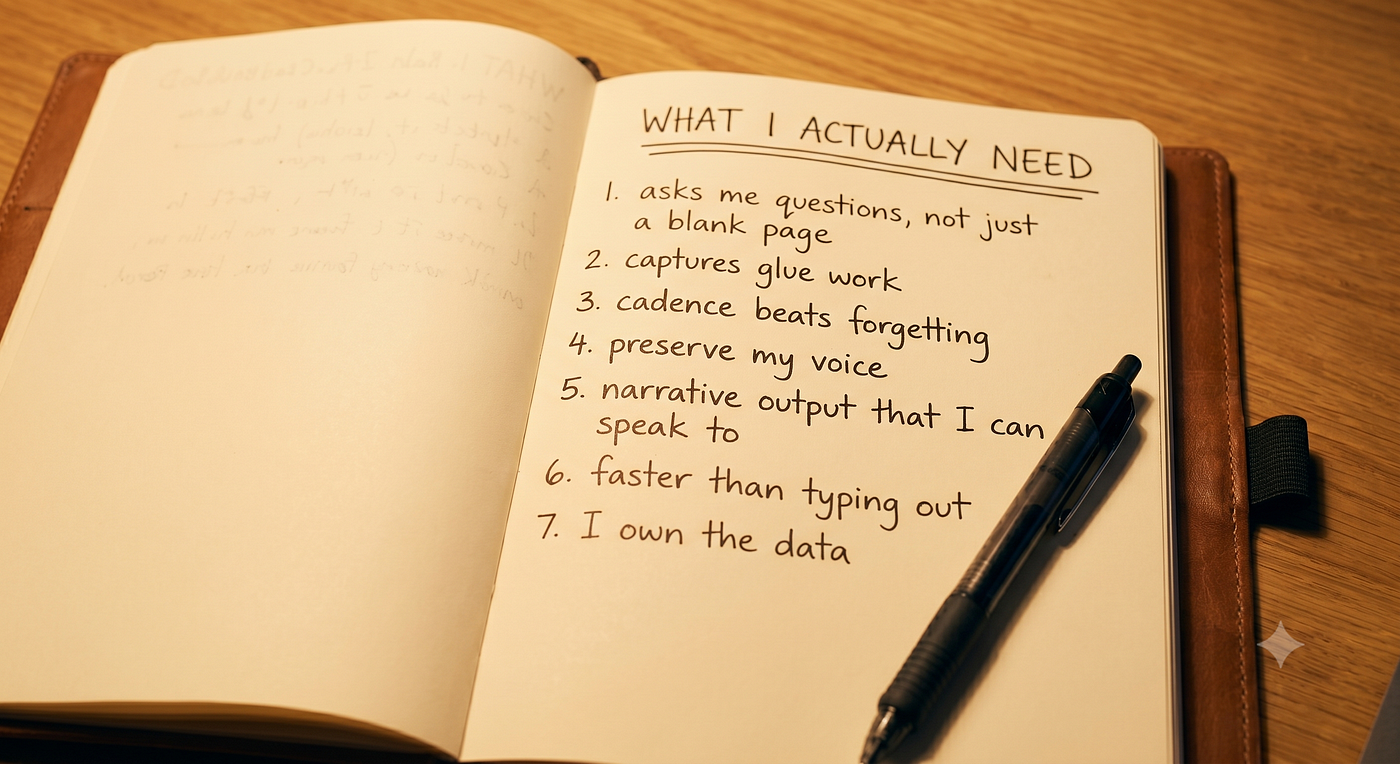 WHAT I ACTUALLY NEED
1. asks me questions, not just
a blank page
2. captures glue work
3. cadence beats forgetting
4. preserve my voice
5. narrative output that I can
speak to
6. faster than typing out
7. I own the data